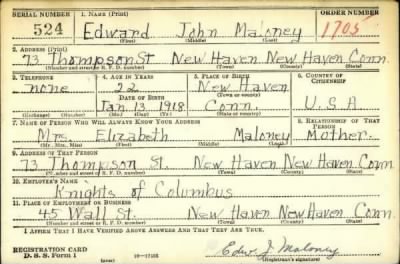 SERIAL NUMBER 1. NAME (Print) ORDER NUMBER
524 Edward John Maloney 1705
(First) (Middle) (Last)
2. ADDRESS (Print)
73 Thompson St New Haven New Haven Conn.
(Number and street or R. F. D. number) (Town) (County) (State)
3. TELEPHONE 4. AGE IN YEARS 5. PLACE OF BIRTH 6. COUNTRY OF CITIZENSHIP
none 22 New Haven
DATE OF BIRTH (Town or county)
Jan 13 1918 Conn. U.S.A
(Exchange) (Number) (Mo.) (Day) (Yr.) (State or country)
7. NAME OF PERSON WHO WILL ALWAYS KNOW YOUR ADDRESS 8. RELATIONSHIP OF THAT PERSON
Mrs. Elizabeth Maloney Mother.
(Mr., Mrs., Miss) (First) (Middle) (Last)
9. ADDRESS OF THAT PERSON
73 Thompson St. New Haven New Haven Conn
(Number and street or R. F. D. number) (Town) (County) (State)
10. EMPLOYER'S NAME
Knights of Columbus
11. PLACE OF EMPLOYMENT OR BUSINESS
45 Wall St. New Haven New Haven Conn
(Number and street or R. F. D. number) (Town) (County) (State)
I AFFIRM THAT I HAVE VERIFIED ABOVE ANSWERS AND THAT THEY ARE TRUE.
REGISTRATION CARD
D. S. S. Form 1 Edw. J. Maloney
(Registrant's signature)